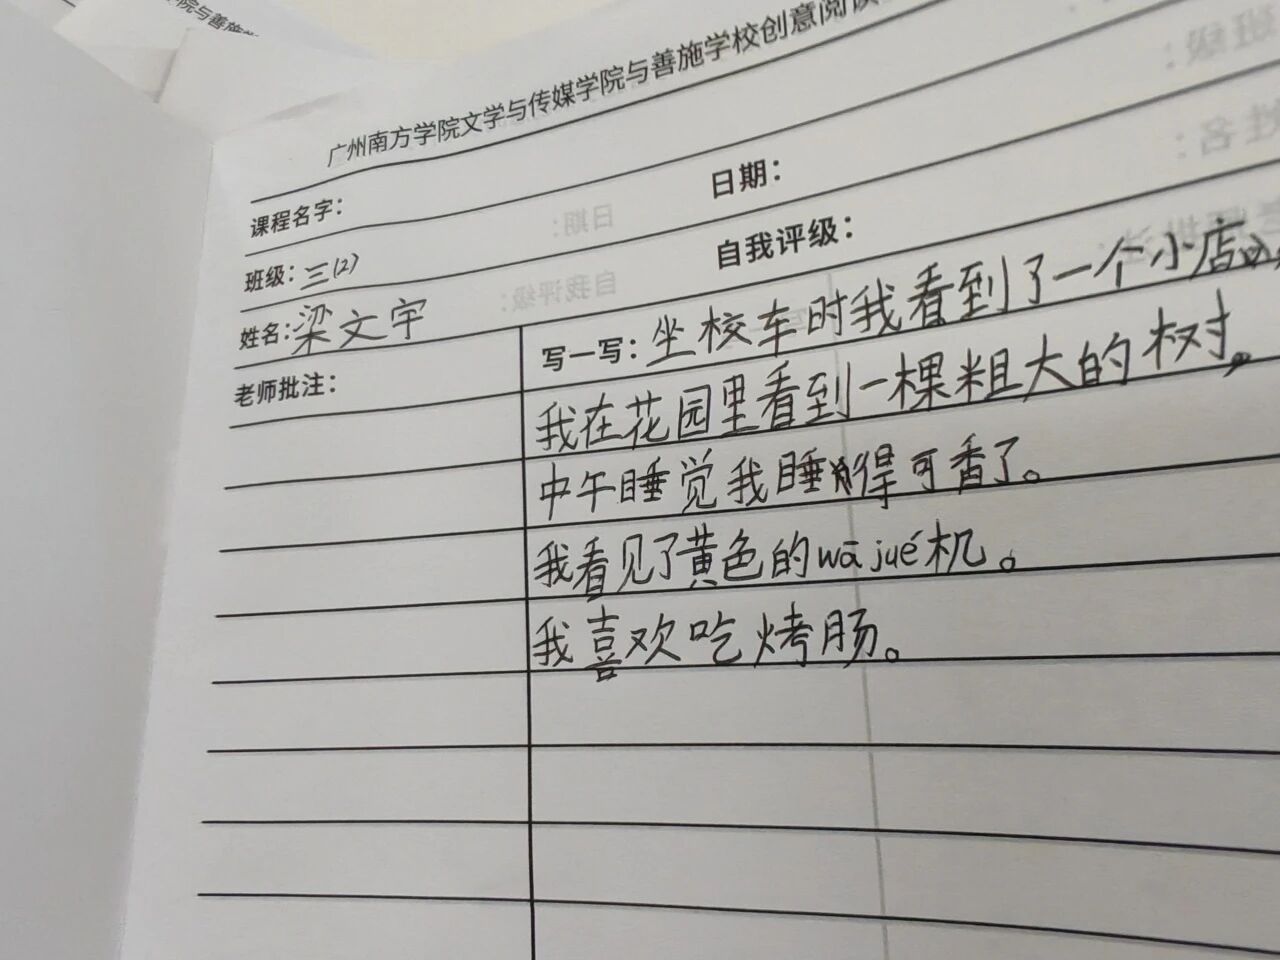 广州南方学院文学与传媒学院与善施学校创意阅读
课程名字： 日期：
班级：三(2) 自我评级：
姓名：梁文宇
老师批注：
写一写：坐校车时我看到了一个小店
我在花园里看到一棵粗大的树。
中午睡觉我睡得可香了。
我看见了黄色的wā jué机。
我喜欢吃烤肠。